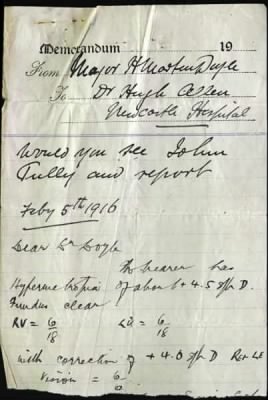 Memorandum 19
From Major H Morton Doyle
To Dr Hugh Allen
Newcastle Hospital
Would you see John
Tully and report
Feby 5th 1916
Dear Dr Doyle
The bearer has
Hypermetropia of about + 4.5 sph D.
Fundus clear
RV = 6/18 LV = 6/18
with correction of + 4.0 sph D R+LE
Vision = 6/